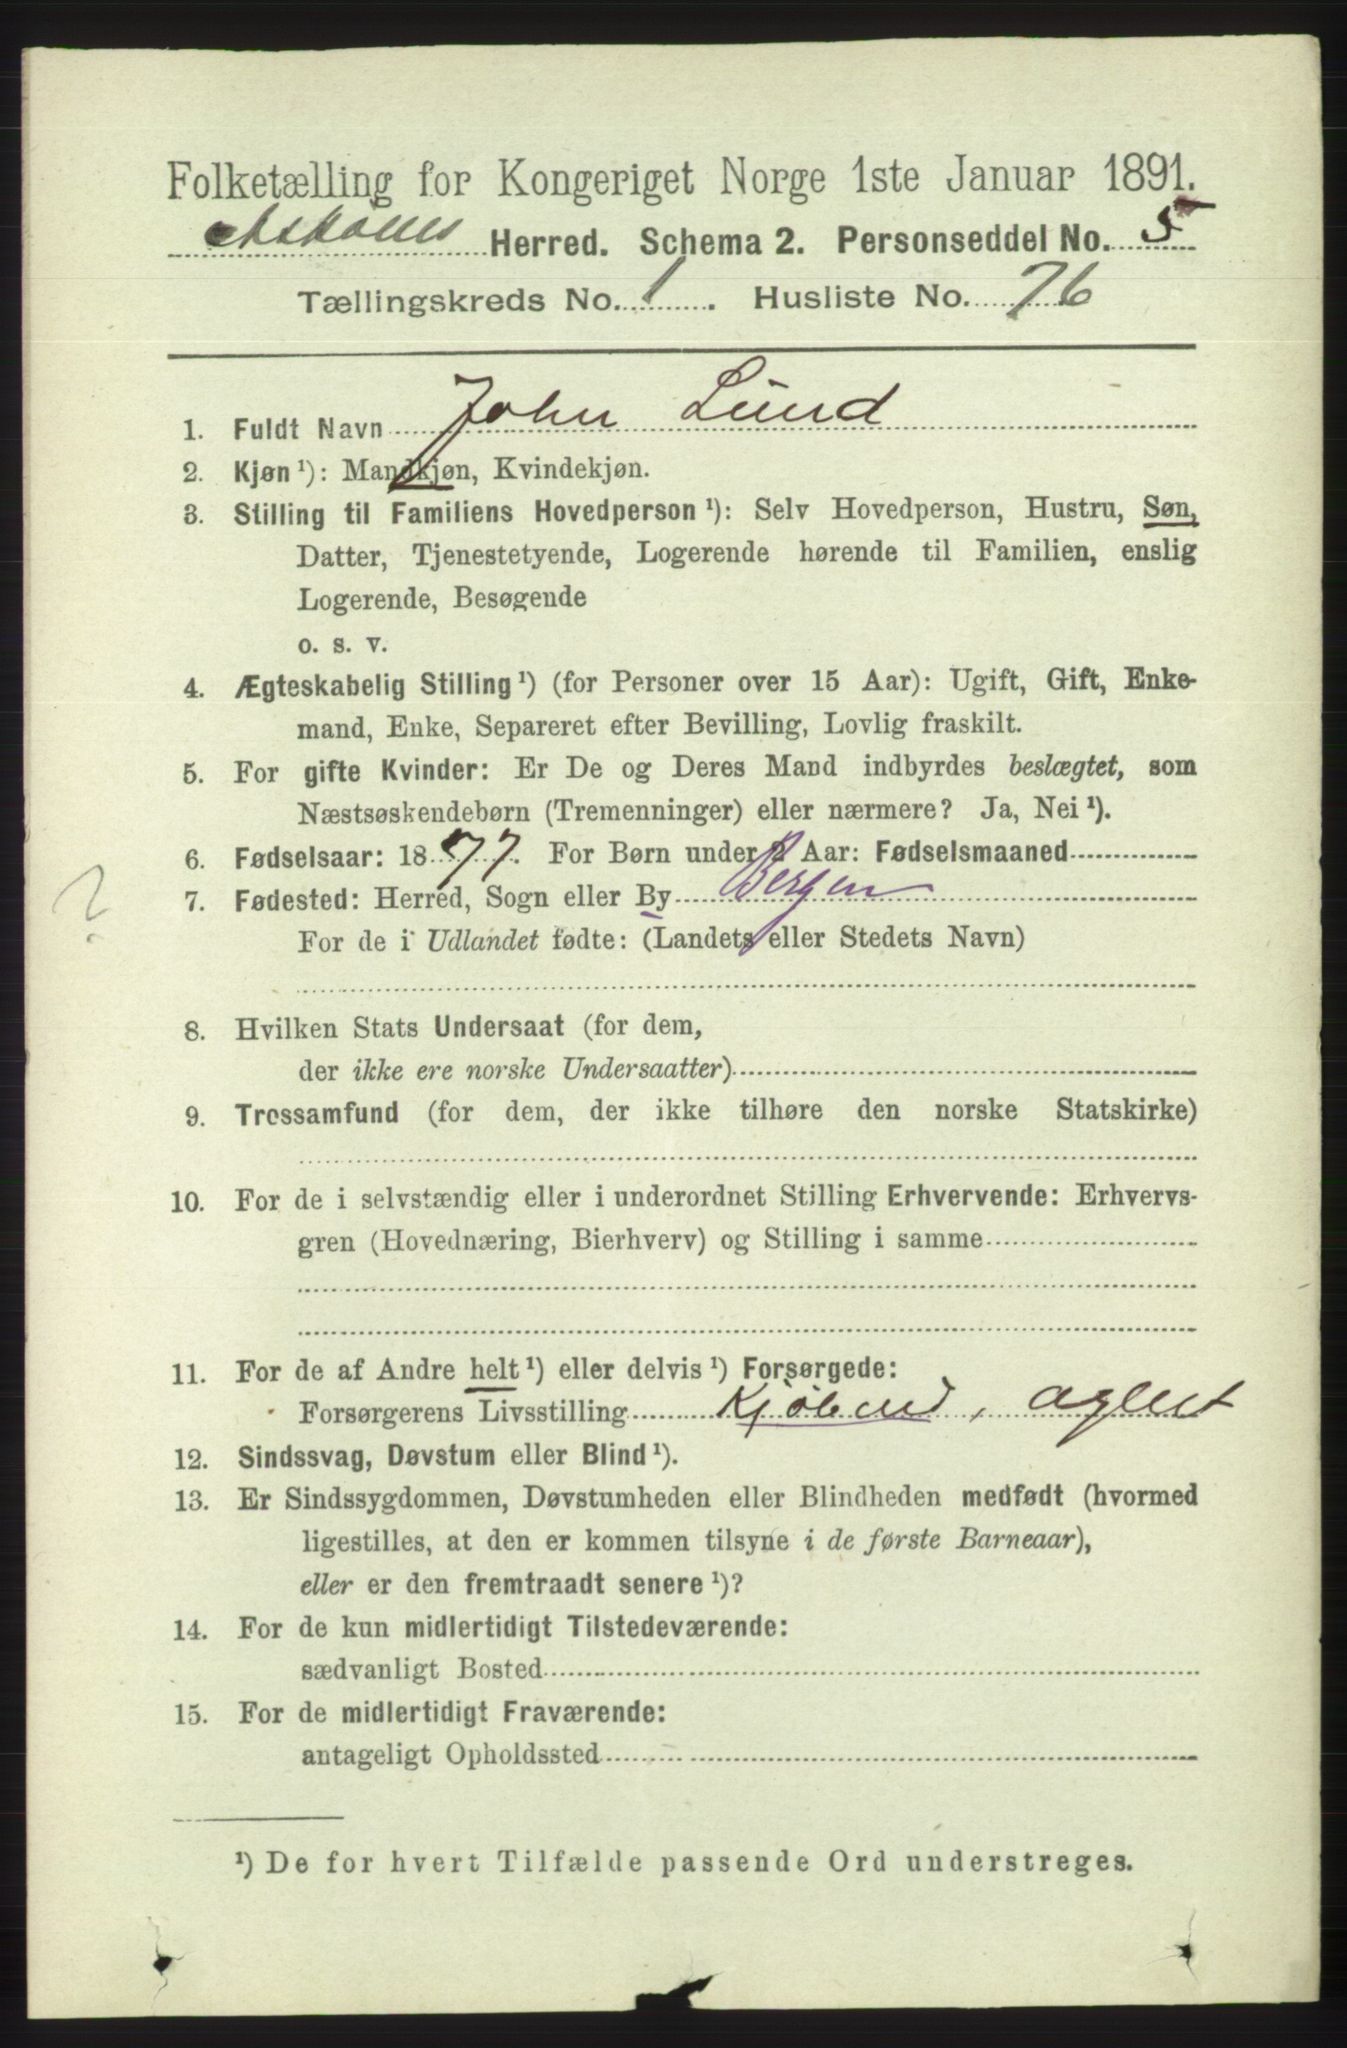 Folketælling for Kongeriget Norge 1ste Januar 1891.
Askøens Herred. Schema 2. Personseddel No. 5
Tællingskreds No. 1. Husliste No. 76
1. Fuldt Navn John Lund
2. Kjøn ¹): Mandkjøn, Kvindekjøn.
3. Stilling til Familiens Hovedperson ¹): Selv Hovedperson, Hustru, Søn,
Datter, Tjenestetyende, Logerende hørende til Familien, enslig
Logerende, Besøgende
o. s. v.
4. Ægteskabelig Stilling ¹) (for Personer over 15 Aar): Ugift, Gift, Enke-
mand, Enke, Separeret efter Bevilling, Lovlig fraskilt.
5. For gifte Kvinder: Er De og Deres Mand indbyrdes beslægtet, som
Næstsøskendebørn (Tremenninger) eller nærmere? Ja, Nei ¹).
6. Fødselsaar: 1877. For Børn under 2 Aar: Fødselsmaaned
7. Fødested: Herred, Sogn eller By Bergen
For de i Udlandet fødte: (Landets eller Stedets Navn)
?
8. Hvilken Stats Undersaat (for dem,
der ikke ere norske Undersaatter)
9. Trossamfund (for dem, der ikke tilhøre den norske Statskirke)
10. For de i selvstændig eller i underordnet Stilling Erhvervende: Erhvervs-
gren (Hovednæring, Bierhverv) og Stilling i samme
11. For de af Andre helt ¹) eller delvis ¹) Forsørgede:
Forsørgerens Livsstilling Kjøbmd,
12. Sindssvag, Døvstum eller Blind ¹).
13. Er Sindssygdommen, Døvstumheden eller Blindheden medfødt (hvormed
ligestilles, at den er kommen tilsyne i de første Barneaar),
eller er den fremtraadt senere ¹)?
14. For de kun midlertidigt Tilstedeværende:
sædvanligt Bosted
15. For de midlertidigt Fraværende:
antageligt Opholdssted
¹) De for hvert Tilfælde passende Ord understreges.